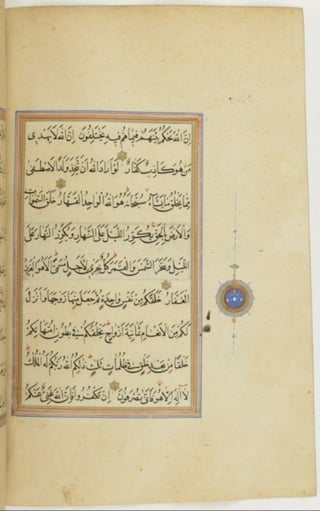 إن الله يحكم بينهم فيما هم فيه يختلفون إن الله لا يهدي
من هو كاذب كفار لو أراد الله أن يتخذ ولدا لاصطفى
مما يخلق ما يشاء سبحانه هو الله الواحد القهار خلق السموات
والأرض بالحق يكور الليل على النهار ويكور النهار على
الليل وسخر الشمس والقمر كل يجري لأجل مسمى ألا هو العزيز
الغفار خلقكم من نفس واحدة ثم جعل منها زوجها وأنزل
لكم من الأنعام ثمانية أزواج يخلقكم في بطون أمهاتكم
خلقا من بعد خلق في ظلمات ثلاث ذلكم الله ربكم له الملك
لا إله إلا هو فأنى تصرفون إن تكفروا فإن الله غني عنكم